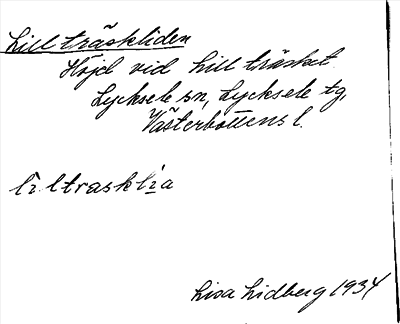 Lill träskliden
Höjd vid Lill träsket
Lycksele sn, Lycksele tg,
Västerbottens l.
lì.ltrasklìa
Lisa Lidberg 1934